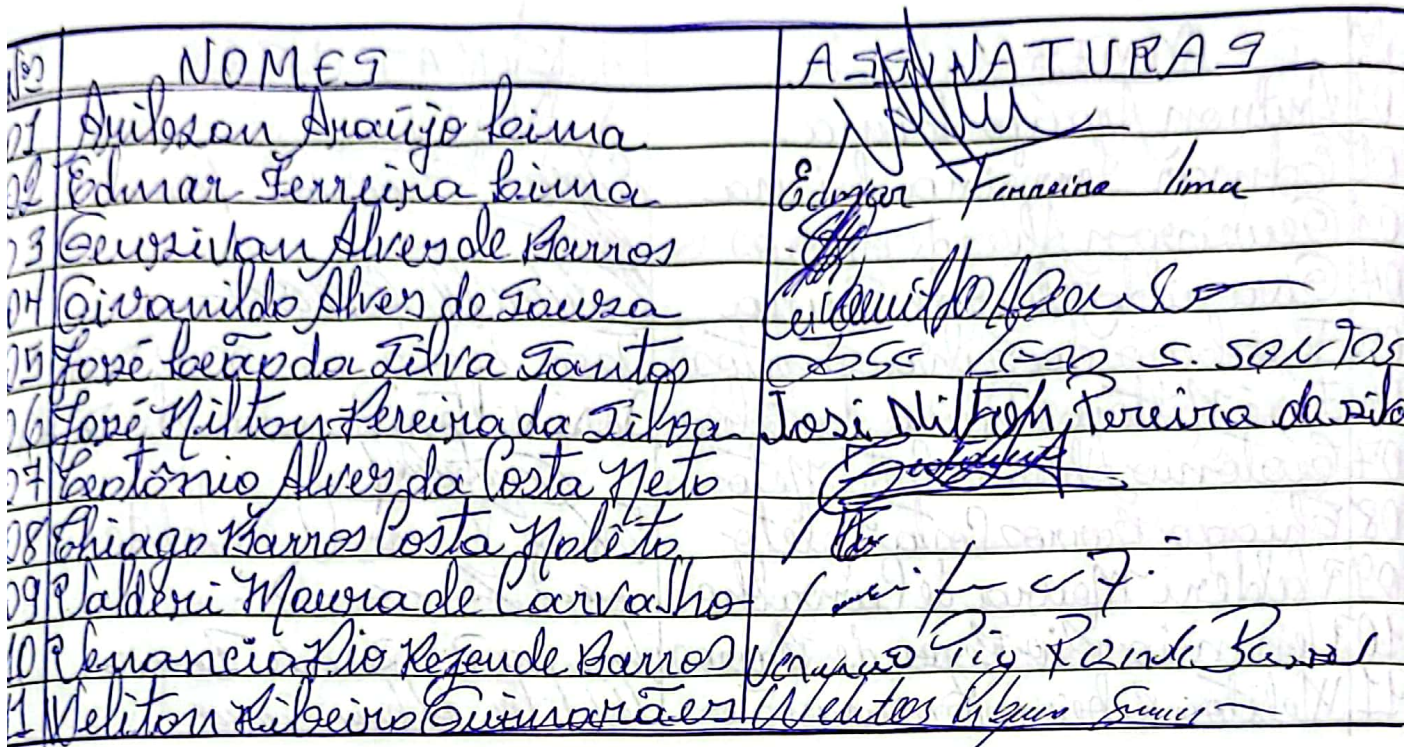 Nº NOMES ASSINATURAS
01 Arilson Araújo Lima
02 Edmar Ferreira Lima Edmar Ferreira lima
03 Geuzivan Alves de Barros
04 Givanildo Alves de Souza
05 José Leão da Silva Santos José Leao S. SANTOS
06 José Nilton Pereira da Silva José Nilton Pereira da silva
07 Teotônio Alves da Costa Neto
08 Thiago Barros Costa Noleto
09 Valderi Moura de Carvalho
10 Venancia Pio Rezende Barros
11 Weliton Ribeiro Guimarães Weliton Ribeiro